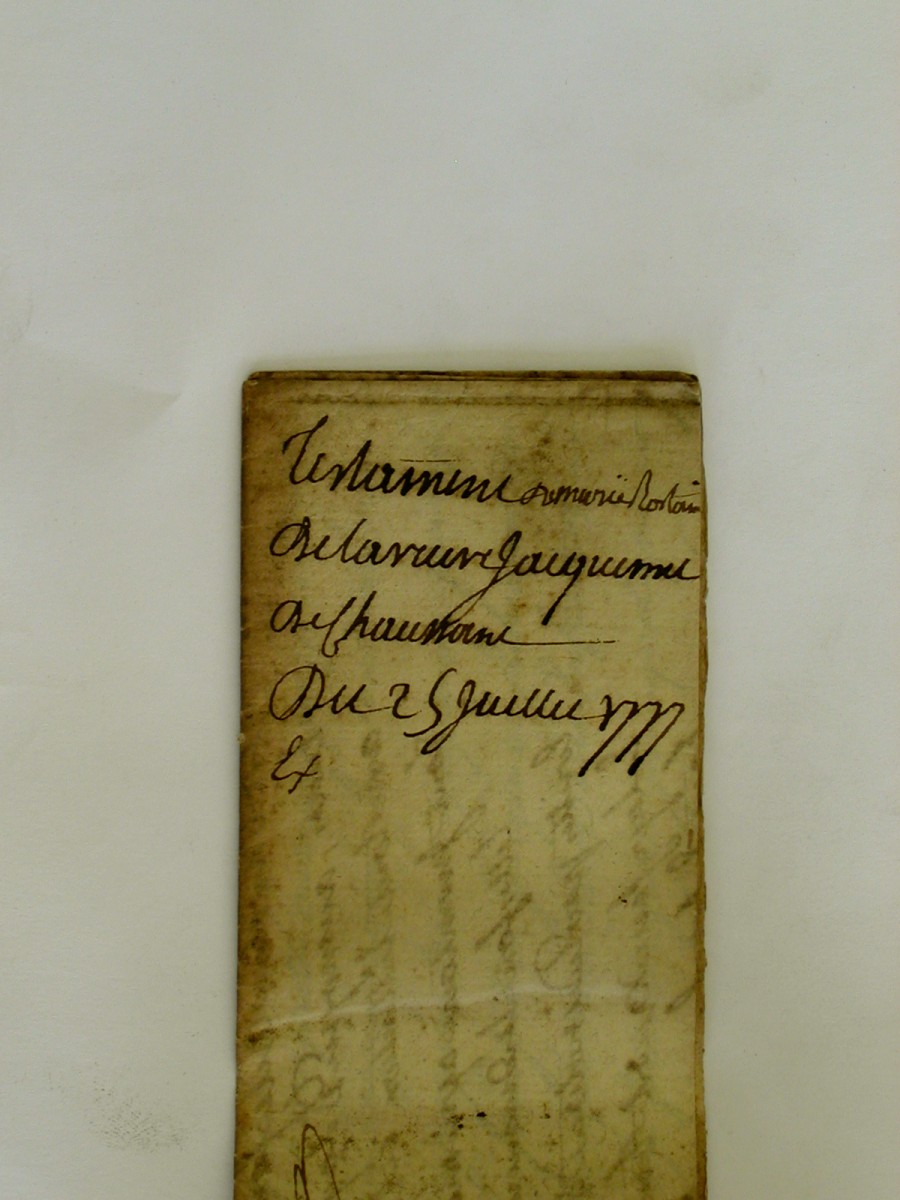 Testament de marie Rostain
De la veuve Jacquemet
De Chaussane
Du 25 Juillet 1777
Ex